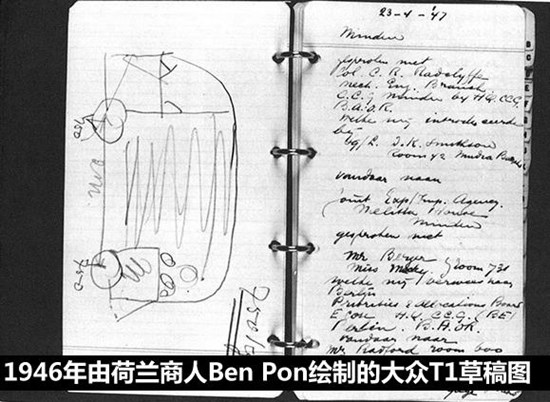 750
750
750 kg
23-4-'47
Minden
gesproken met
Col. C. R. Radclyffe
Mech. Eng. Branch
C.C.G. Minden by HQ. CCG.
B.A.O.R.
welke mij introduceerde
bij
room
vandaar naar
Joint Exp/Imp. Agency.
Melitta House
Minden
gesproken met
Mr Berger
Miss room 731
welde mij verwees naar
Berlijn
Priorities & allocations Board
Econ H.Q. CCG. (BE)
Berlin. B.A.O.R.
vandaar naar
Mr. Radford room 600
1946年由荷兰商人Ben Pon绘制的大众T1草稿图